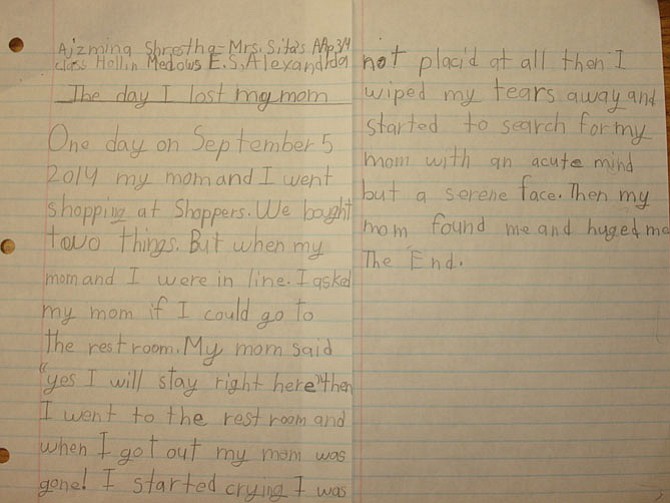 Ajzming Shrestha - Mrs. Sita's AAp 3/4
class Hollin Medows E.S, Alexandria
The day I lost my mom
One day on September 5
2014 my mom and I went
shopping at Shoppers. We bought
two things. But when my
mom and I were in line. I asked
my mom if I could go to
the rest room. My mom said
"yes I will stay right here" then
I went to the rest room and
when I got out my mom was
gone! I started crying I was
not placid at all then I
wiped my tears away and
started to search for my
mom with an acute mind
but a serene face. Then my
mom found me and huged me
The End.